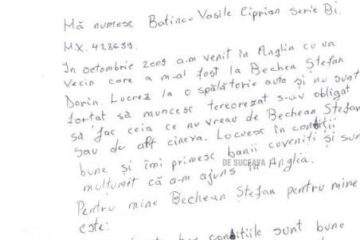 Mă numesc Batincu Vasile Ciprian Serie Bi.
MX. 428639.
În octombrie 2009 a-m venit în Anglia cu un
vecin care a m-al fost la Bechea Ștefan
Dorin. Lucrez la o spălătorie auto și nu sunt
fortat să muncesc terorezat s-au obligat
să fac ceia ce nu vreau de Bechean Stefan
sau de alt cineva. Locuesc în condiții
bune și îmi primesc banii coveniți și sun
mulțumit că a-m ajuns în Anglia.
DE SUCEAVA
Pentru mine Bechean Ștefan pentru mine
este:
condițiile sunt bune